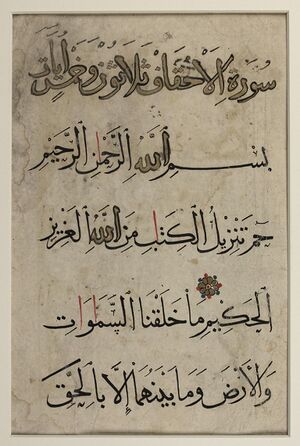 سورة الاحقاف ثلاثون وخمس ايات
بسم الله الرحمن الرحيم
حم تنزيل الكتب من الله العزيز
الحكيم ما خلقنا السموات
والأرض وما بينهما إلا بالحق